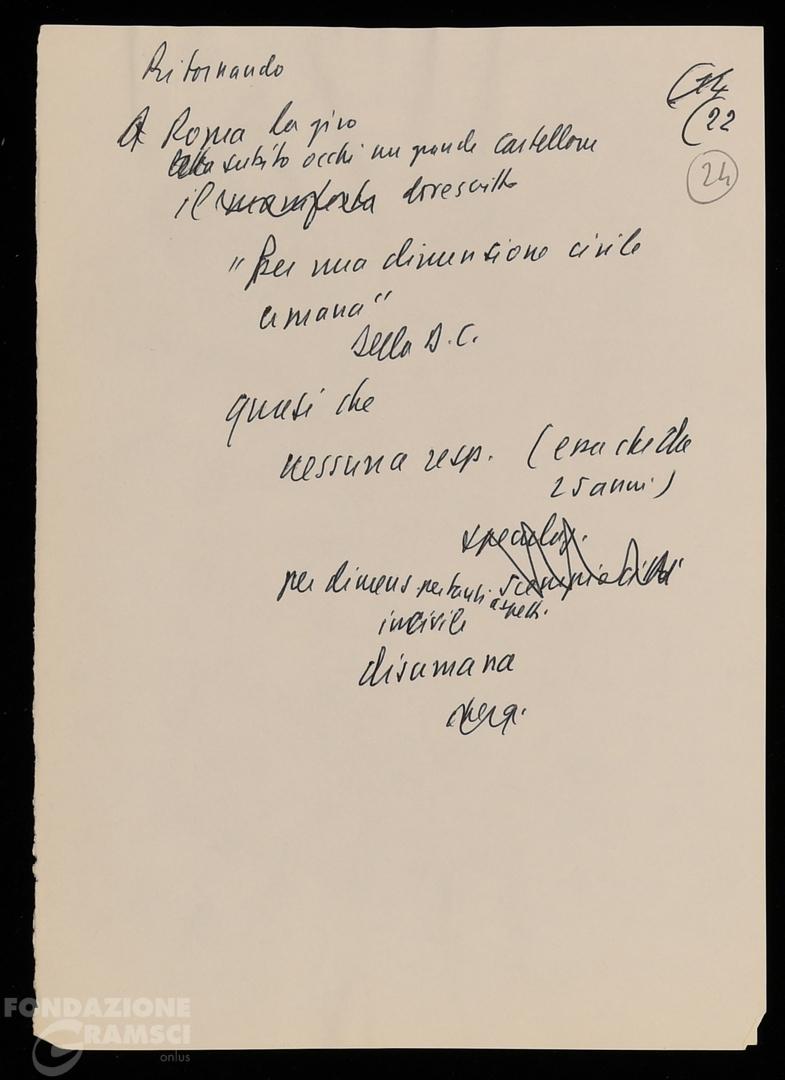 Ritornando
(14
(22
24
A Roma la giro
subito occhi un grande cartellone
il manifesto dove scritto
"Per una dimensione civile
umana"
della D.C.
quasi che
nessuna resp. (essa che da
25 anni)
per dimens per tanti
aspetti
incivile
disumana
FONDAZIONE
GRAMSCI
onlus